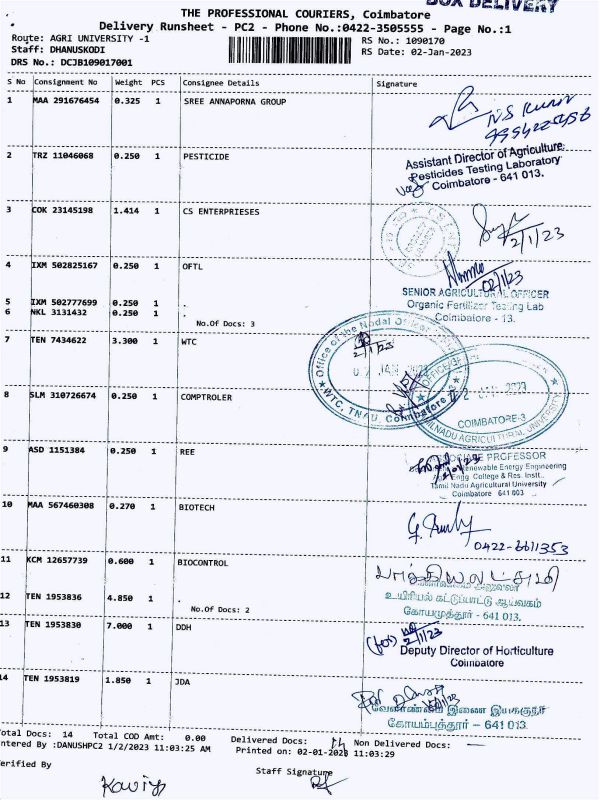 BOX DELIVERY
THE PROFESSIONAL COURIERS, Coimbatore
Delivery Runsheet - PC2 - Phone No.:0422-3505555 - Page No.:1
Route: AGRI UNIVERSITY -1
RS No.: 1090170
Staff: DHANUSKODI
RS Date: 02-Jan-2023
DRS No.: DCJB109017001
S No Consignment No Weight PCS Consignee Details Signature
1 MAA 291676454 0.325 1 SREE ANNAPORNA GROUP
NS Kumar
2 TRZ 11046068 0.250 1 PESTICIDE
Assistant Director of Agriculture
Pesticides Testing Laboratory
Coimbatore - 641 013.
3 COK 23145198 1.414 1 CS ENTERPRIESES
2/1/23
4 IXM 502825167 0.250 1 OFTL
02/1/23
SENIOR AGRICULTURAL OFFICER
Organic Fertilizer Testing Lab
Coimbatore - 13.
5 IXM 502777699 0.250 1 .
6 NKL 3131432 0.250 1 .
No.Of Docs: 3
7 TEN 7434622 3.300 1 WTC
Office of the Nodal Officer
2/1/23
02 JAN 2023
WTC, TNAU, Coimbatore
8 SLM 310726674 0.250 1 COMPTROLER
2 JAN 2023
COIMBATORE-3
TAMILNADU AGRICULTURAL UNIVERSITY
9 ASD 1151384 0.250 1 REE
PROFESSOR
Renewable Energy Engineering
Engg College & Res. Instt.,
Tamil Nadu Agricultural University
Coimbatore 641 003
10 MAA 567460308 0.270 1 BIOTECH
0422-6611353
11 KCM 12657739 0.600 1 BIOCONTROL
உயிரியல் கட்டுப்பாட்டு ஆய்வகம்
கோயமுத்தூர் - 641 013.
12 TEN 1953836 4.850 1 .
No.Of Docs: 2
13 TEN 1953830 7.000 1 DDH
2/1/23
Deputy Director of Horticulture
Coimbatore
14 TEN 1953819 1.850 1 JDA
வேளாண்மை இணை இயக்குநர்
கோயம்புத்தூர் – 641 013.
Total Docs: 14 Total COD Amt: 0.00 Delivered Docs: Non Delivered Docs:
ntered By :DANUSHPC2 1/2/2023 11:03:25 AM Printed on: 02-01-2023 11:03:29
erified By
Staff Signature
Kaviya